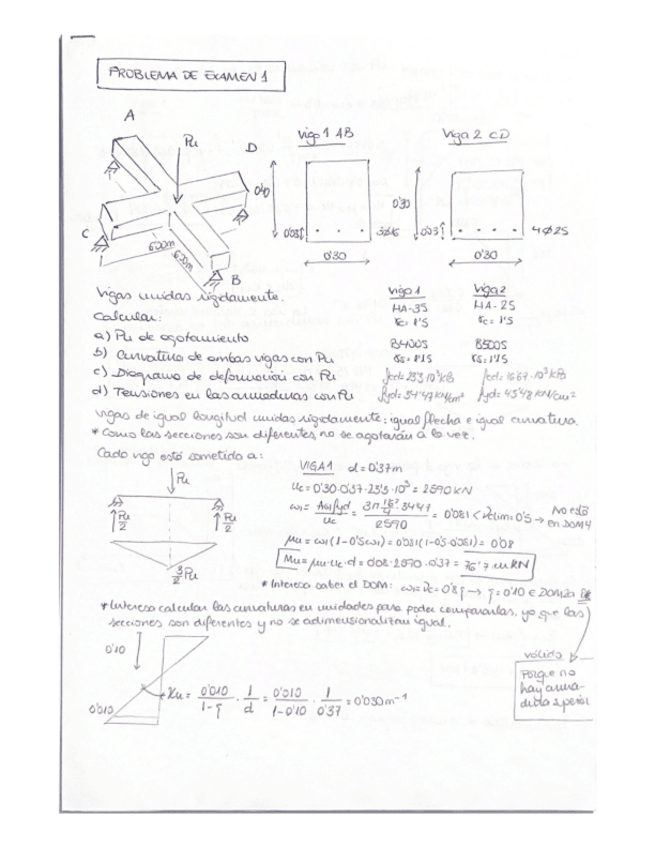 PROBLEMA DE EXAMEN 1
A
Pu
D
C
B
6'00m
6'00m
Viga 1 AB
0'40
0'03
3Ø16
0'30
Viga 2 CD
0'30
0'03
4Ø25
0'30
Vigas unidas rígidamente.
Calcular:
a) Pu de agotamiento
b) Curvatura de ambas vigas con Pu
c) Diagrama de deformación con Pu
d) Tensiones en las armaduras con Pu
Viga 1
HA-35
γc=1'5
B400S
γs=1'15
fcd=23'3·10³ kPa
fyd=34'47 kN/cm²
Viga 2
HA-25
γc=1'5
B500S
γs=1'15
fcd=16'67·10³ kPa
fyd=43'48 kN/cm²
Vigas de igual longitud unidas rígidamente: igual flecha e igual curvatura.
* Como las secciones son diferentes, no se agotarán a la vez.
Cada viga está sometida a:
Pu
Pu/2
Pu/2
3/2 Pu
VIGA 1 d=0'37m
Uc=0'30·0'37·23'3·10³ = 2590 kN
ω1= As1fyd/Uc = 3π 1'6²/4 34'47/2590 = 0'081 < νlim=0'5 → No está en DOM 4
μu=ω1(1-0'5ω1)=0'081(1-0'5·0'081)=0'08
Mu=μu·Uc·d=0'08·2590·0'37=76'7 mkN
* Interesa saber el DOM: ω1=νc=0'8ξ → ξ=0'10 ∈ DOM 2a
* Interesa calcular las curvaturas en unidades para poder compararlas, ya que las
secciones son diferentes y no se adimensionalizan igual.
0'10
0'010
χu= 0'010/1-ξ · 1/d = 0'010/1-0'10 · 1/0'37 = 0'030 m⁻¹
válido
Porque no
hay arma-
dura superior